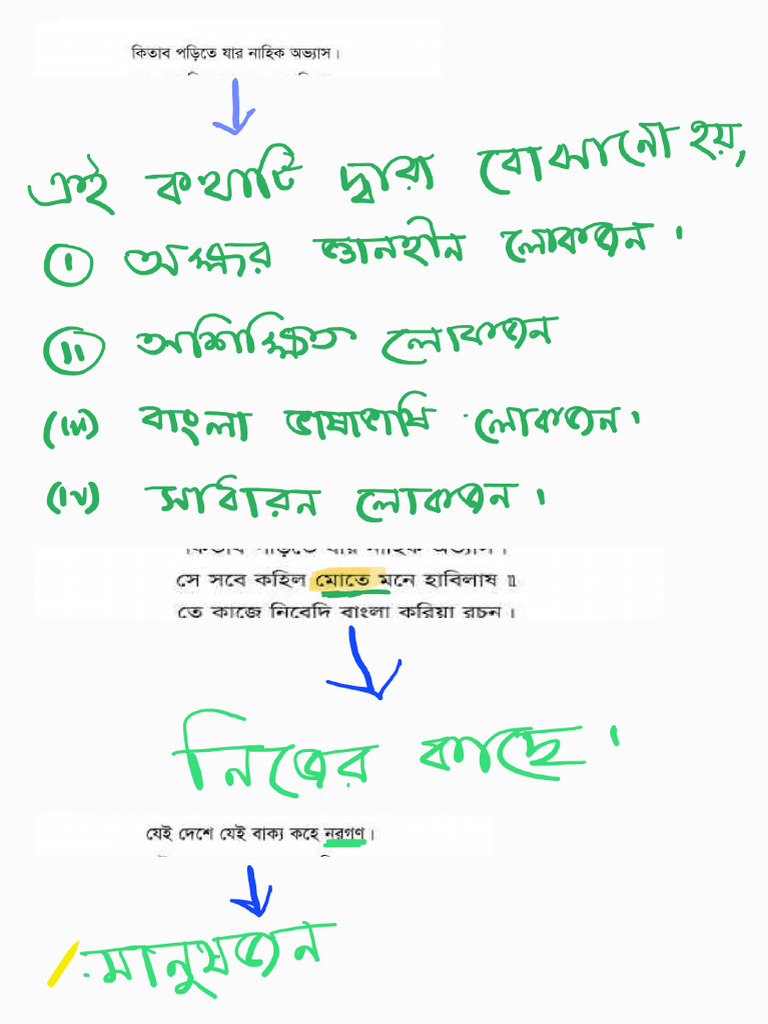 কিতাব পড়িতে যার নাহিক অভ্যাস।
এই কথাটি দ্বারা বোঝানো হয়,
(i) অক্ষর জ্ঞানহীন লোকজন।
(ii) অশিক্ষিত লোকজন
(iii) বাংলা ভাষাভাষি লোকজন।
(iv) সাধারন লোকজন।
কিতাব পড়িতে যার নাহিক অভ্যাস।
সে সবে কহিল মোতে মনে হাবিলাষ॥
তে কাজে নিবেদি বাংলা করিয়া রচন।
নিজের কাছে।
যেই দেশে যেই বাক্য কহে নরগণ।
মানুষজন